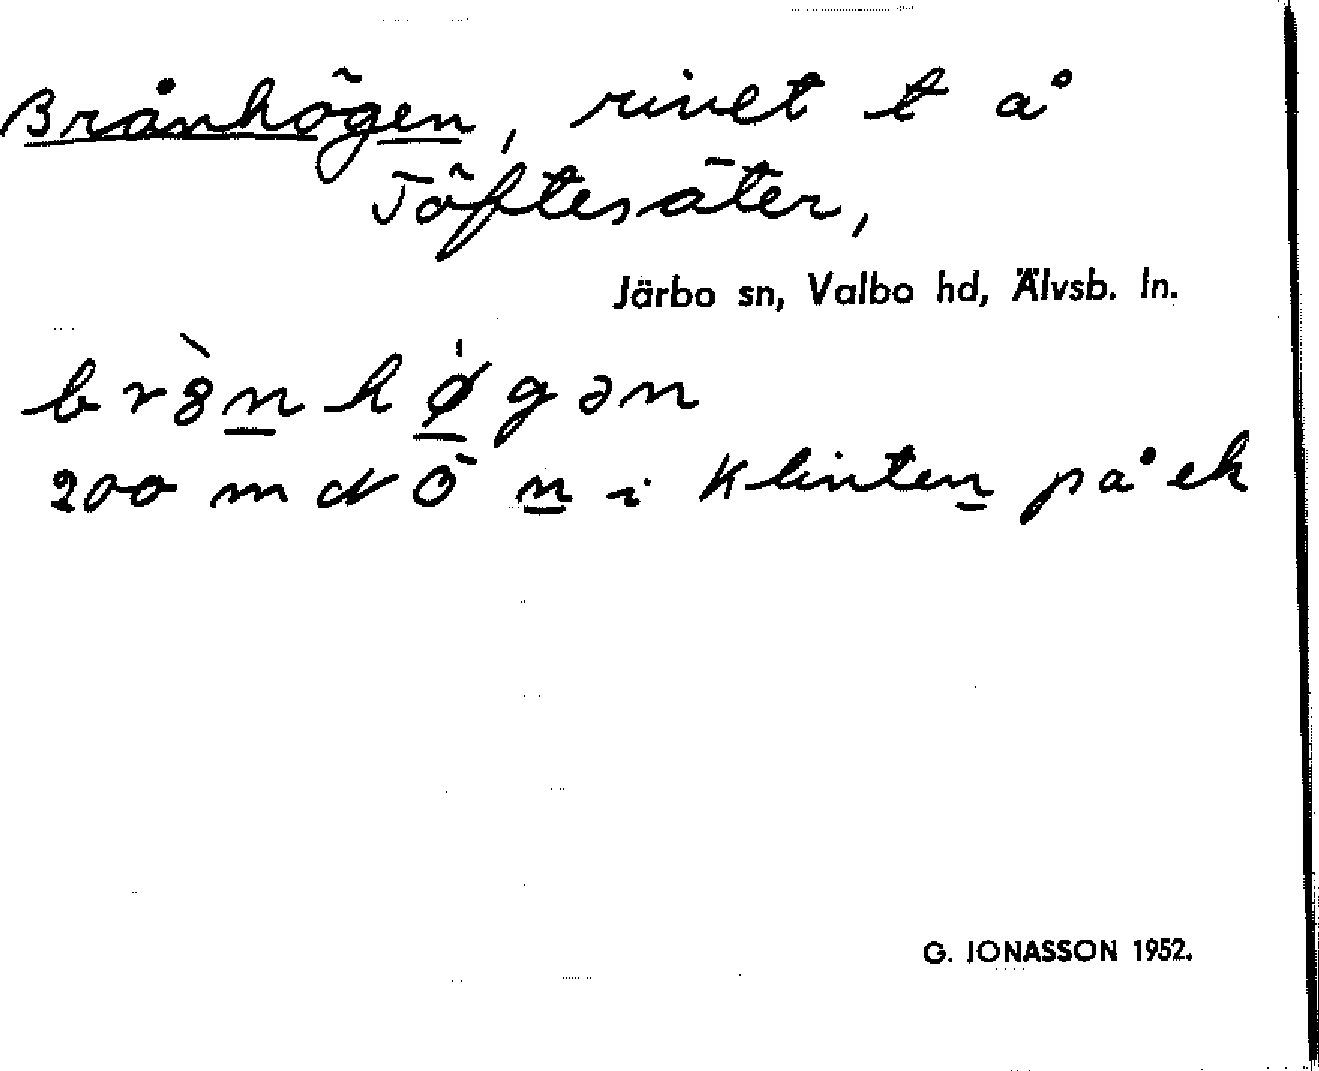 Brånhögen, rivet t å
Töftesäter,
Järbo sn, Valbo hd, Älvsb. ln.
br8̀n hø̍gən
200 m Ö n i Klinten på ek
G. JONASSON 1952.